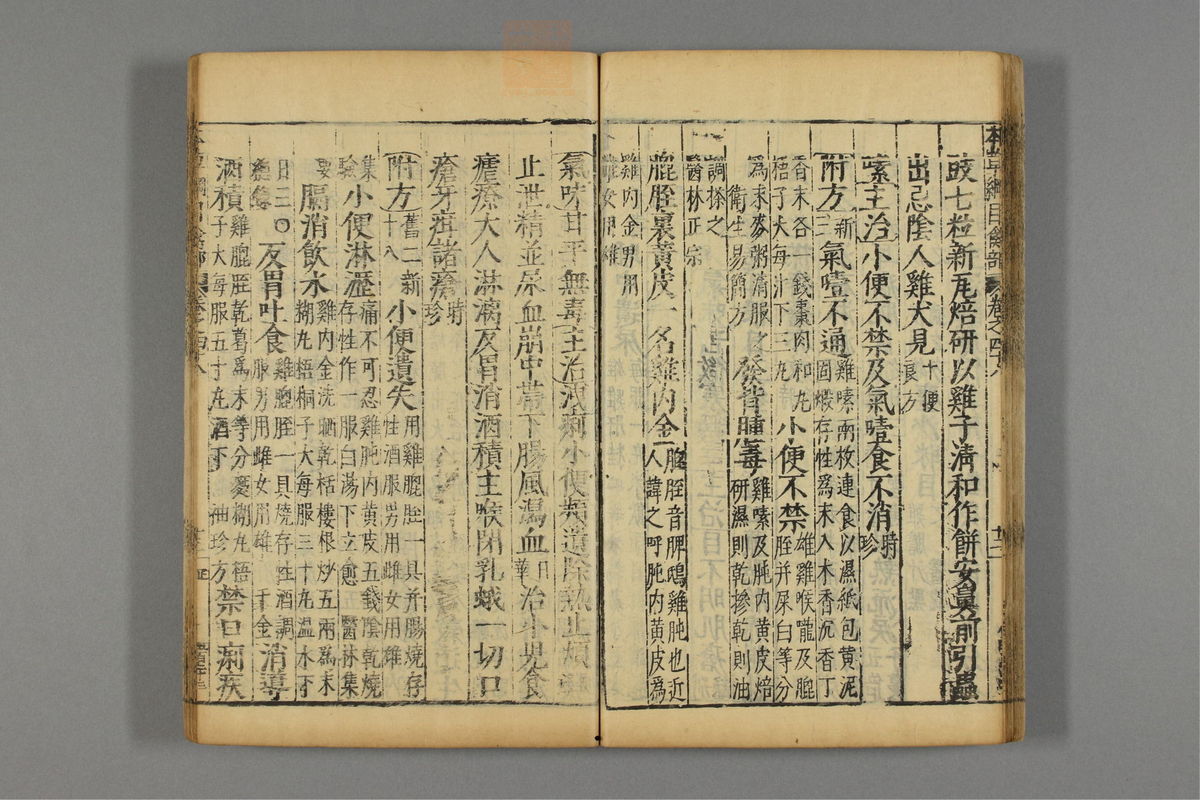 豉七粒新瓦焙研以雞子清和作餅安鼻前引蟲
出忌陰人雞犬見十便良方
嗉主治小便不禁及氣噎食不消時珍
附方新三氣噎不通雞嗉兩枚連食以濕紙包黄泥固煅存性爲末入木香沉香丁
香末各一錢棗肉和丸梧子大每汁下三丸小便不禁雄雞喉嚨及膍胵并屎白等分
爲末麥粥清服之衛生易簡方發背腫毒雞嗉及肫内黄皮焙研濕則乾摻乾則油
調搽之醫林正宗
膍胵裏黄皮一名雞内金膍胵音脾鴟雞肫也近人諱之呼肫内黄皮爲
雞内金男用雌女用雄
氣味甘平無毒主治洩痢小便頻遺除熱止煩
止泄精並尿血崩中帶下腸風瀉血日華治小兒食
瘧療大人淋漓反胃消酒積主喉閉乳蛾一切口
瘡牙疳諸瘡時珍
附方舊二新十八小便遺失用雞膍胵一具并腸燒存性酒服男用雌女用雄
集驗小便淋瀝痛不可忍雞肫内黄皮五錢陰乾燒存性作一服白湯下立愈醫林集
要膈消飲水雞内金洗晒乾栝樓根炒五兩爲末糊丸梧桐子大每服三十丸温水下
日三〇總録反胃吐食雞膍胵一具燒存性酒調服男用雌女用雄千金消導
酒積雞膍胵乾葛爲末等分麪糊丸梧子大每服五十丸酒下袖珍方禁口痢疾